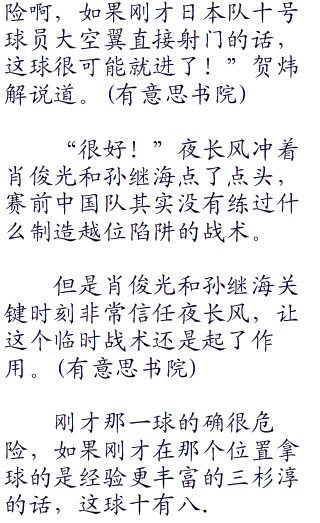 险啊，如果刚才日本队十号
球员大空翼直接射门的话，
这球很可能就进了！”贺炜
解说道。(有意思书院)
“很好！”夜长风冲着
肖俊光和孙继海点了点头，
赛前中国队其实没有练过什
么制造越位陷阱的战术。
但是肖俊光和孙继海关
键时刻非常信任夜长风，让
这个临时战术还是起了作
用。(有意思书院)
刚才那一球的确很危
险，如果刚才在那个位置拿
球的是经验更丰富的三杉淳
的话，这球十有八.